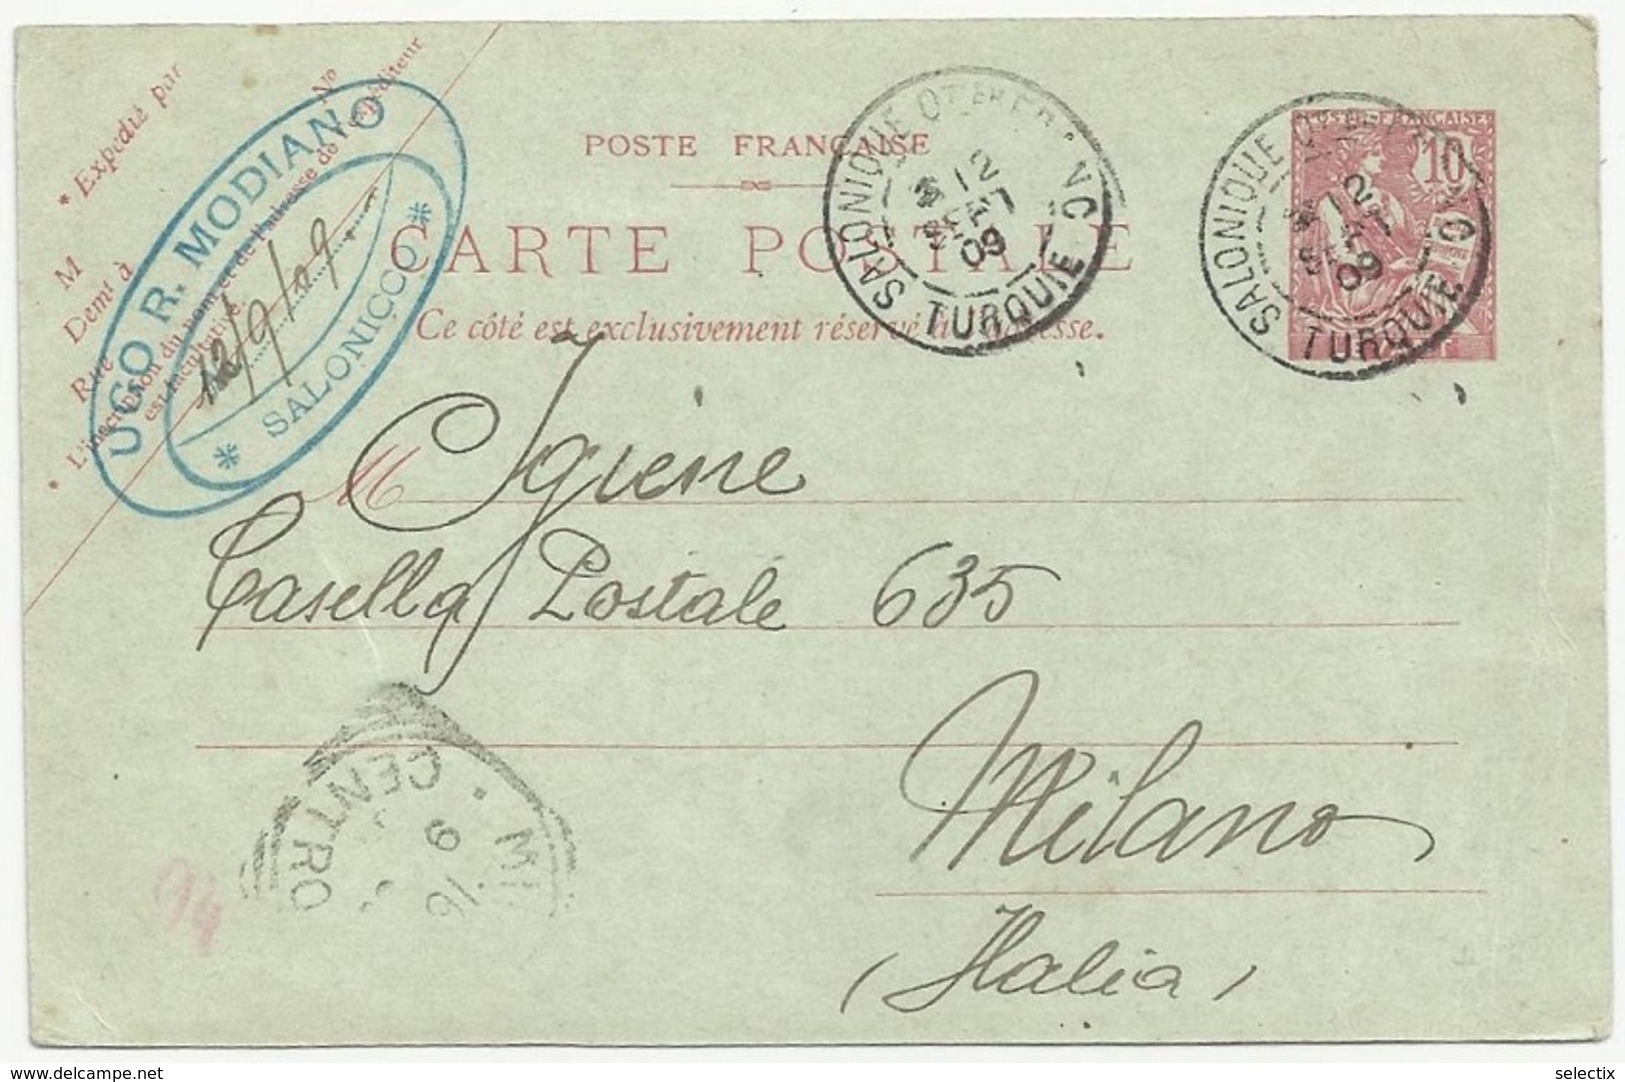 * Expédié par
No
M
Demt à
Rue
* L'inscription du nom et de l'adresse de l'expéditeur
est facultative.
UGO R. MODIANO
* SALONICCO *
12/9/09
POSTE FRANÇAISE
CARTE POSTALE
Ce côté est exclusivement réservé à l'adresse.
SALONIQUE
12
SEPT
09
TURQUIE
POSTE FRANÇAISE
10
SALONIQUE
12
SEPT
09
TURQUIE
M Igiene
Casella Postale 635
Milano
(Italia)
CENTRO
9
selectix